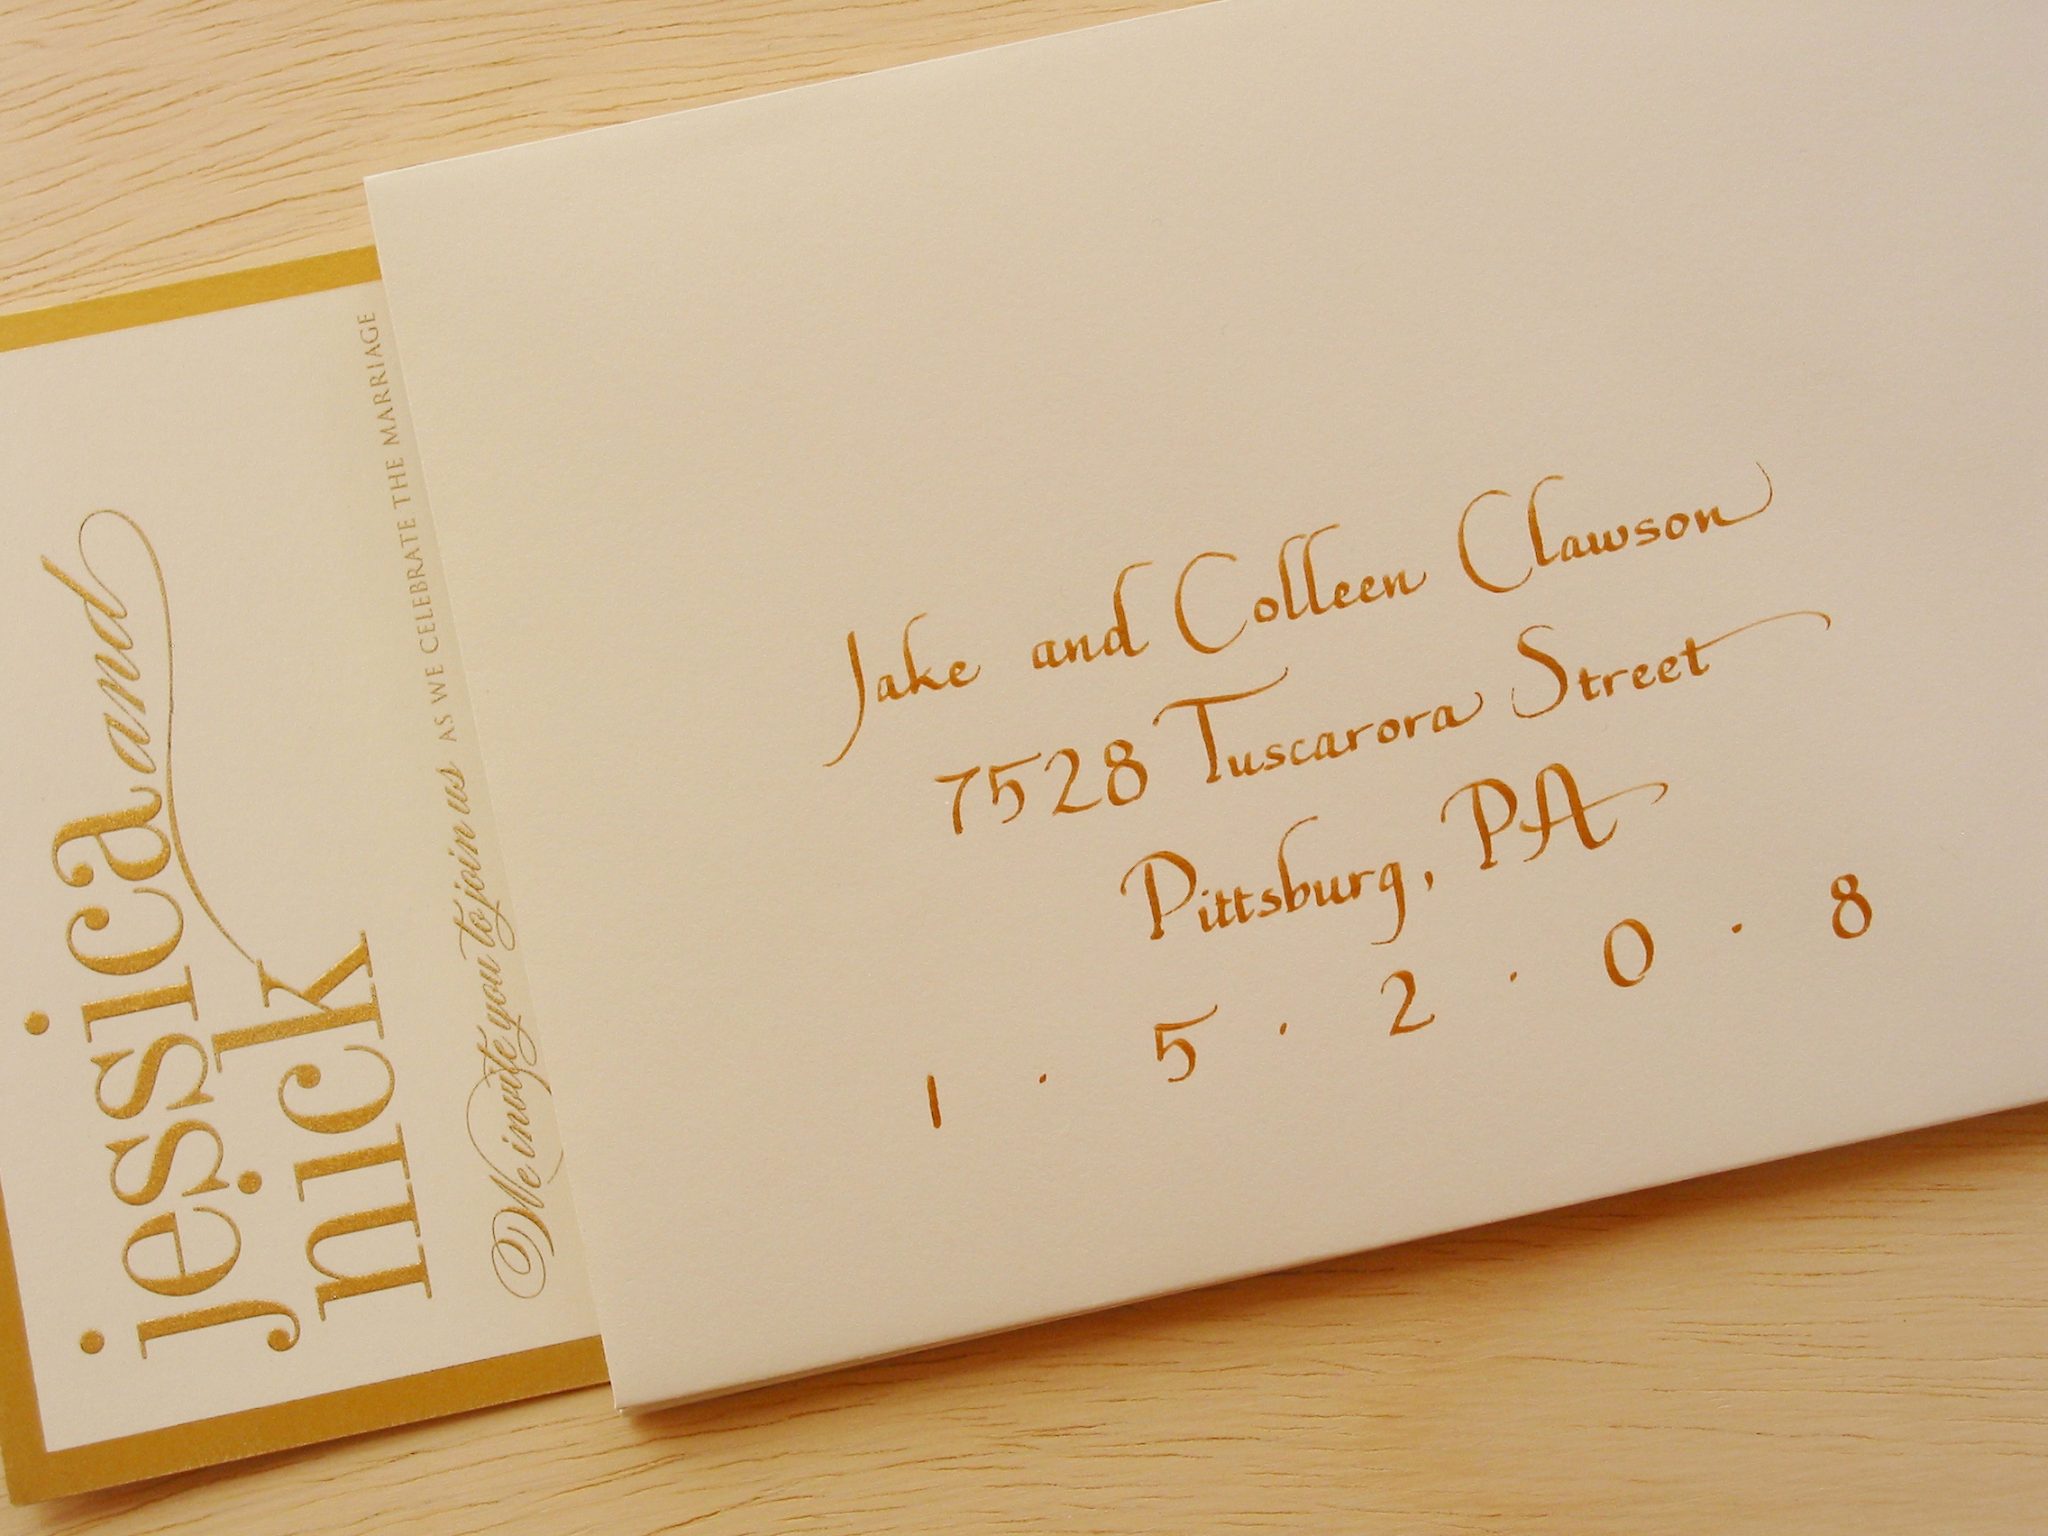 jessica and
nick
We invite you to join us AS WE CELEBRATE THE MARRIAGE
Jake and Colleen Clawson
7528 Tuscarora Street
Pittsburg, PA
1 · 5 · 2 · 0 · 8